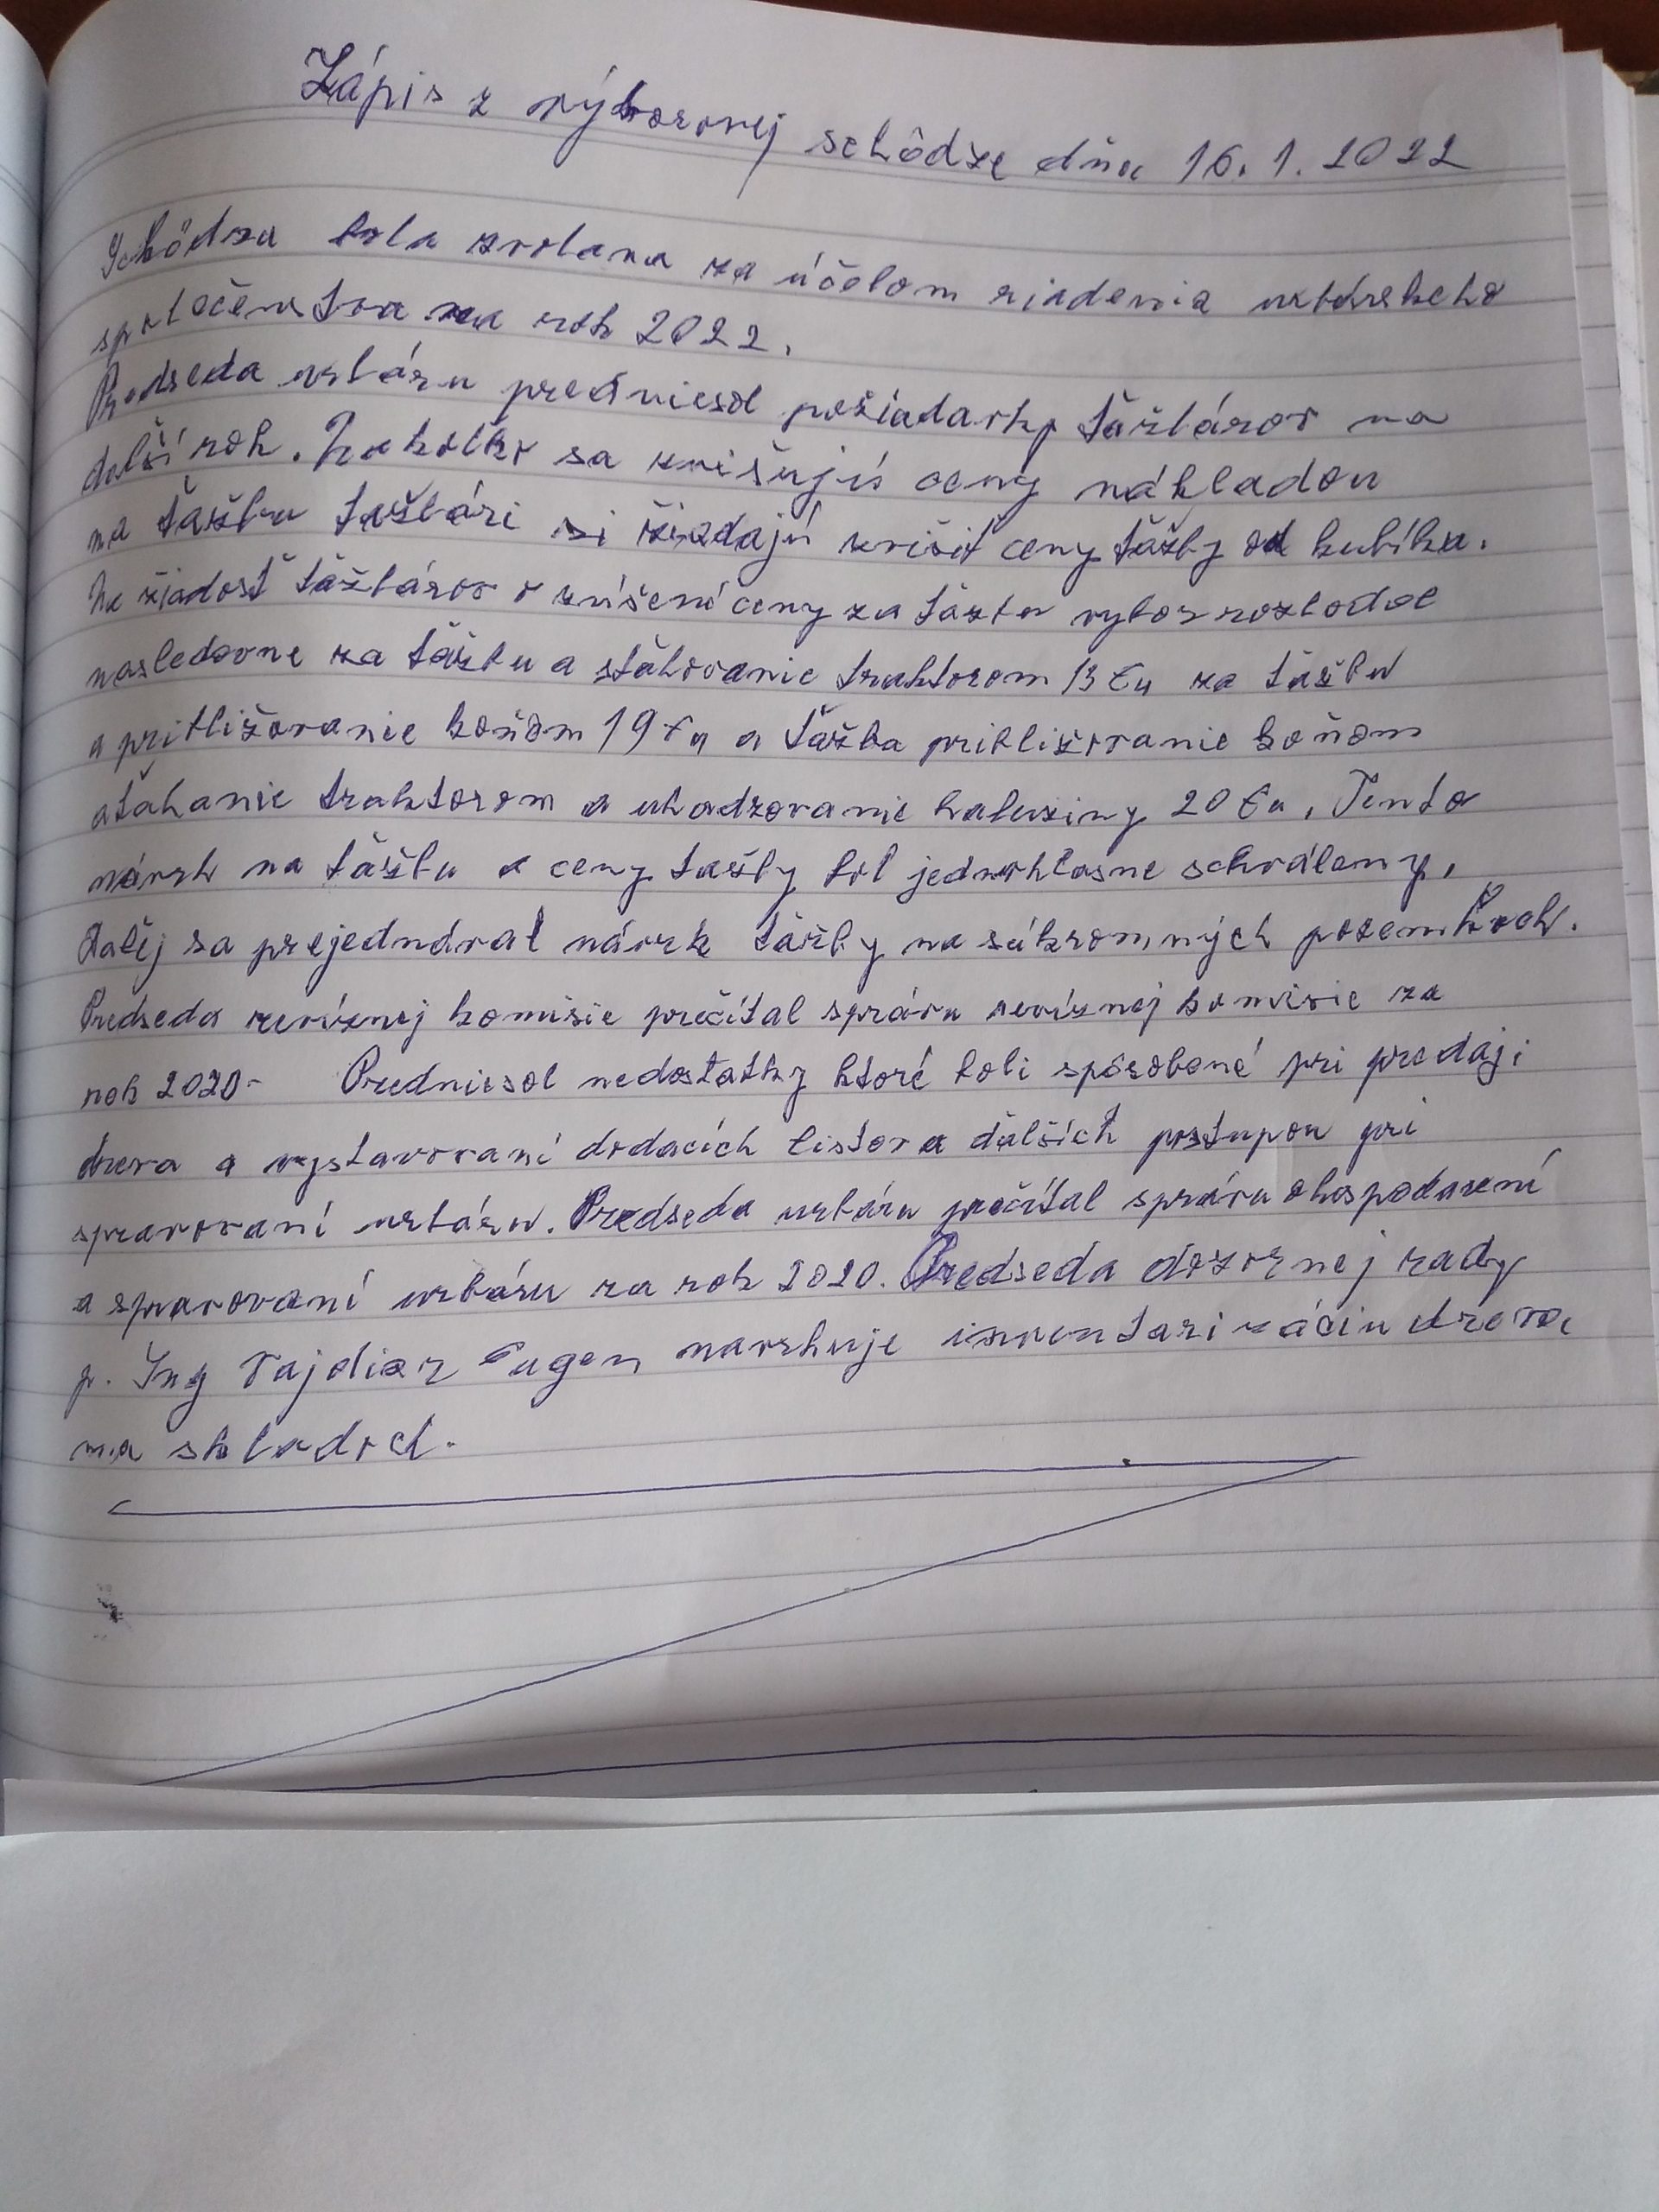 Zápis z výborovej schôdze dňa 16.1.2022
Schôdza bola zvolana za účelom riadenia urbárskeho
spoločenstva na rok 2022.
Predseda urbáru predniesol požiadavky ťažbárov na
další rok. Nakoľko sa zvišujú ceny nákladou
na ťažbu ťažbári si žiadajú zvišiť ceny ťažby od kubíka.
Na žiadosť ťažbárov o zvíšení ceny za ťažbu vybor rozhodol
nasledovne za ťažbu a sťahovanie traktorom 13 €u za ťažbu
a približovanie koňom 19 €u a ťažba približovanie koňom
a ťahanie traktorom a uhadzovanie haluziny 20 €u. Tento
návrh na ťažbu a ceny ťažby bol jednohlasne schváleny.
Ďalej sa prejednával návrh ťažby na súkromných pozemkoch.
Predseda revíznej komisie prečítal správu revíznej komisie za
rok 2020- Predniesol nedostatky ktoré boli spôsobené pri predaji
dreva a vystavovaní dodacích listov a ďalších postupou pri
spravovaní urbáru. Predseda urbáru prečítal správu o hospodarení
a spravovaní urbáru za rok 2020. Predseda dozornej rady
p. Ing Vajdiar Eugen navrhuje inventarizáciu dreva
na skladoch.